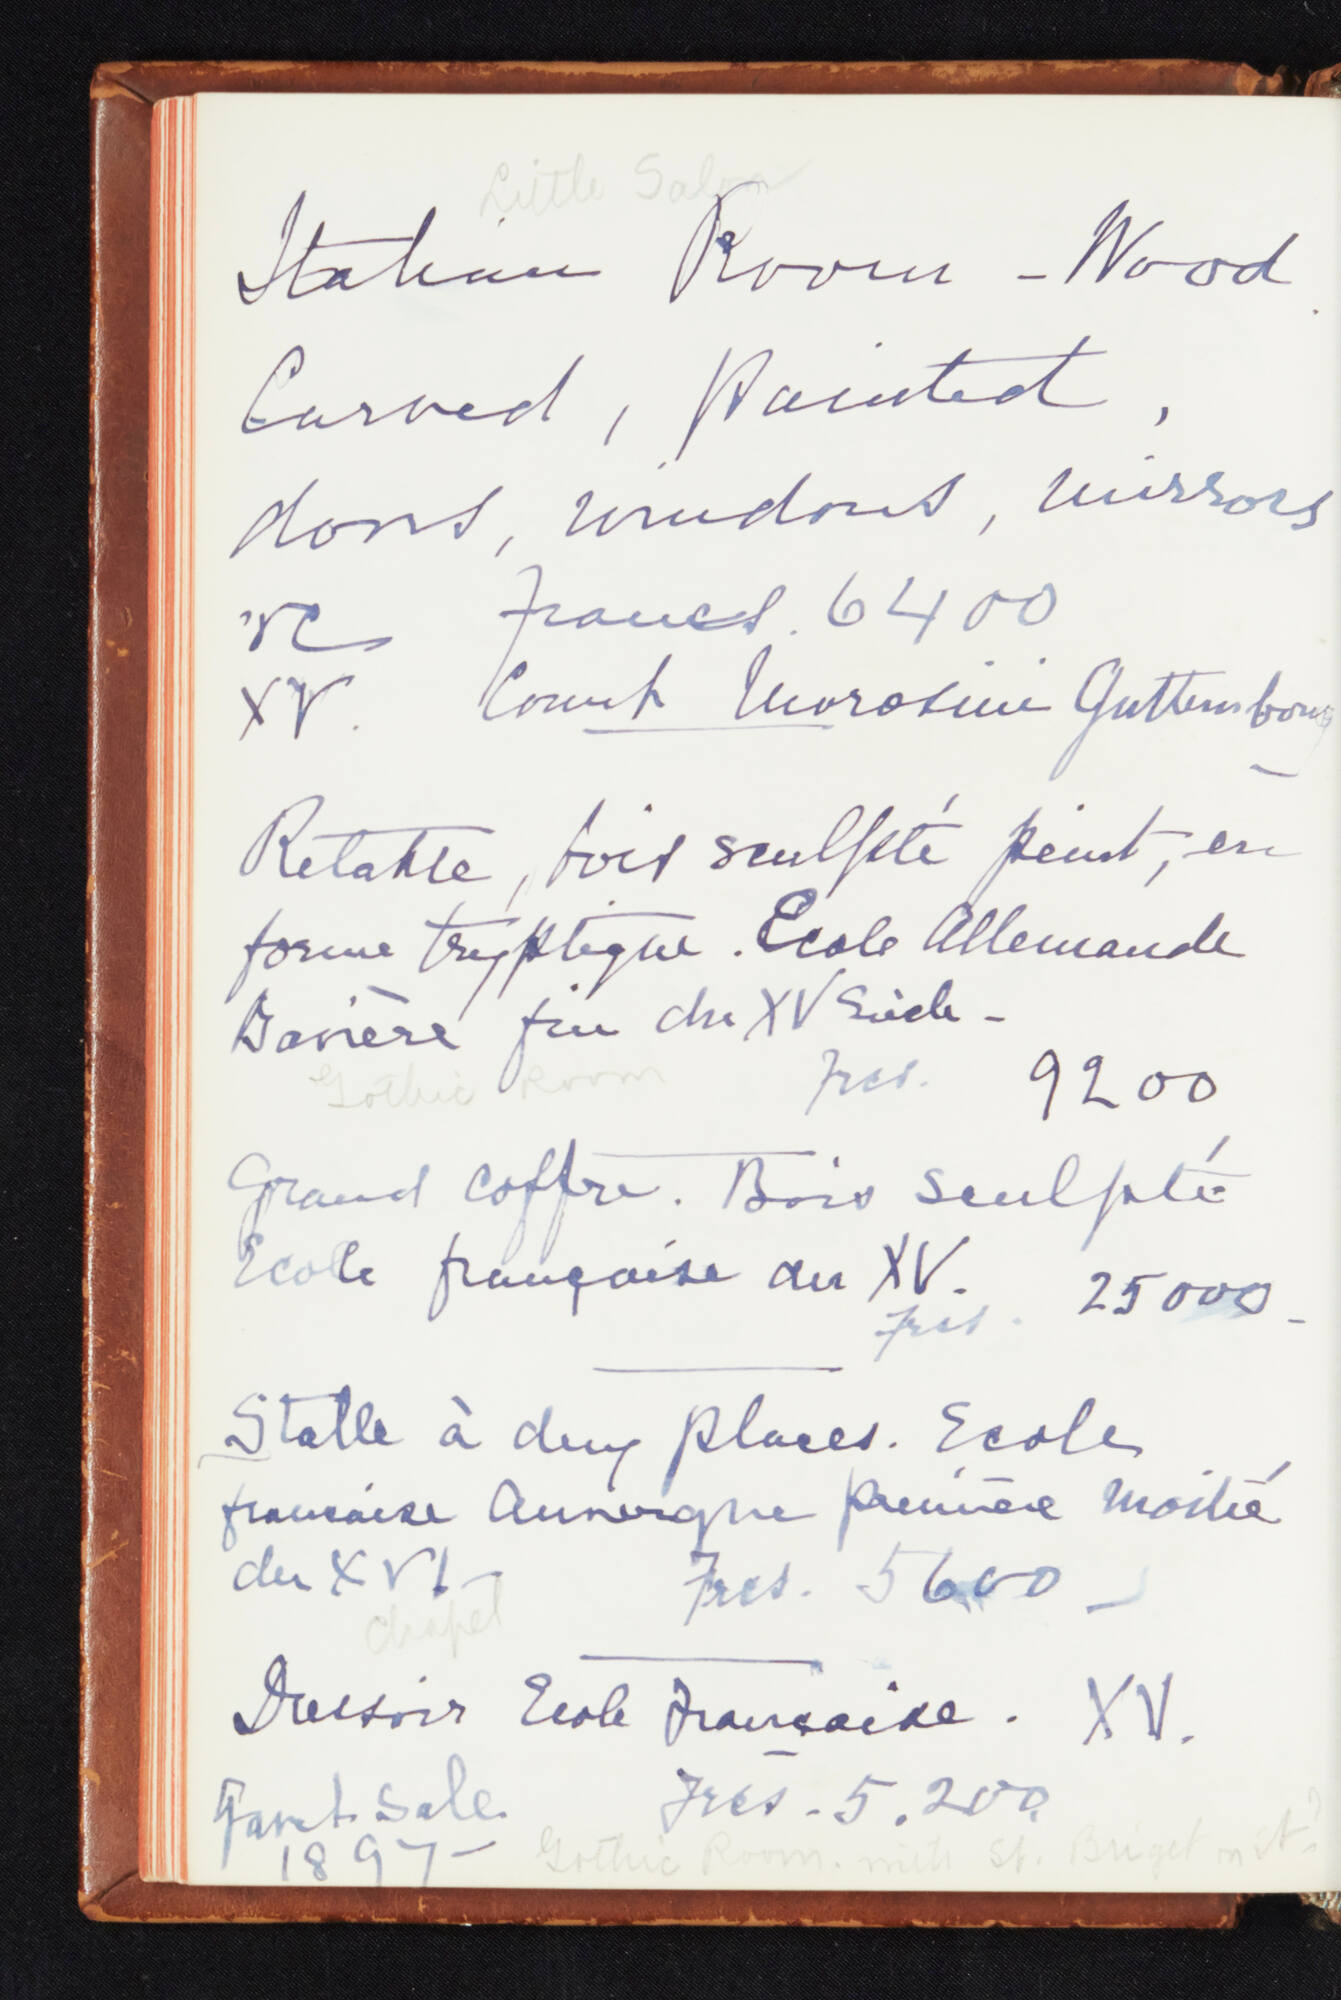 Little Salon
Italian Room - Wood
Carved, painted,
doors, windows, mirrors
&c Francs. 6400
XV. Count Morosini Guttembourg
Retable, bois sculpté peint, en
forme tryptique. Ecole Allemande
Bavière fin du XV Siècle -
Gothic Room Frcs. 9200
Grand coffre. Bois sculpté
Ecole française du XV.
Frcs. 25000 -
Stalle à deux places. Ecole
française Auvergne première Moitié
du XVI - Frcs. 5600 -
chapel
Dressoir Ecole Française. XV.
Gavet Sale. Frcs. 5.200
1897 - Gothic Room. with St. Briget on it?